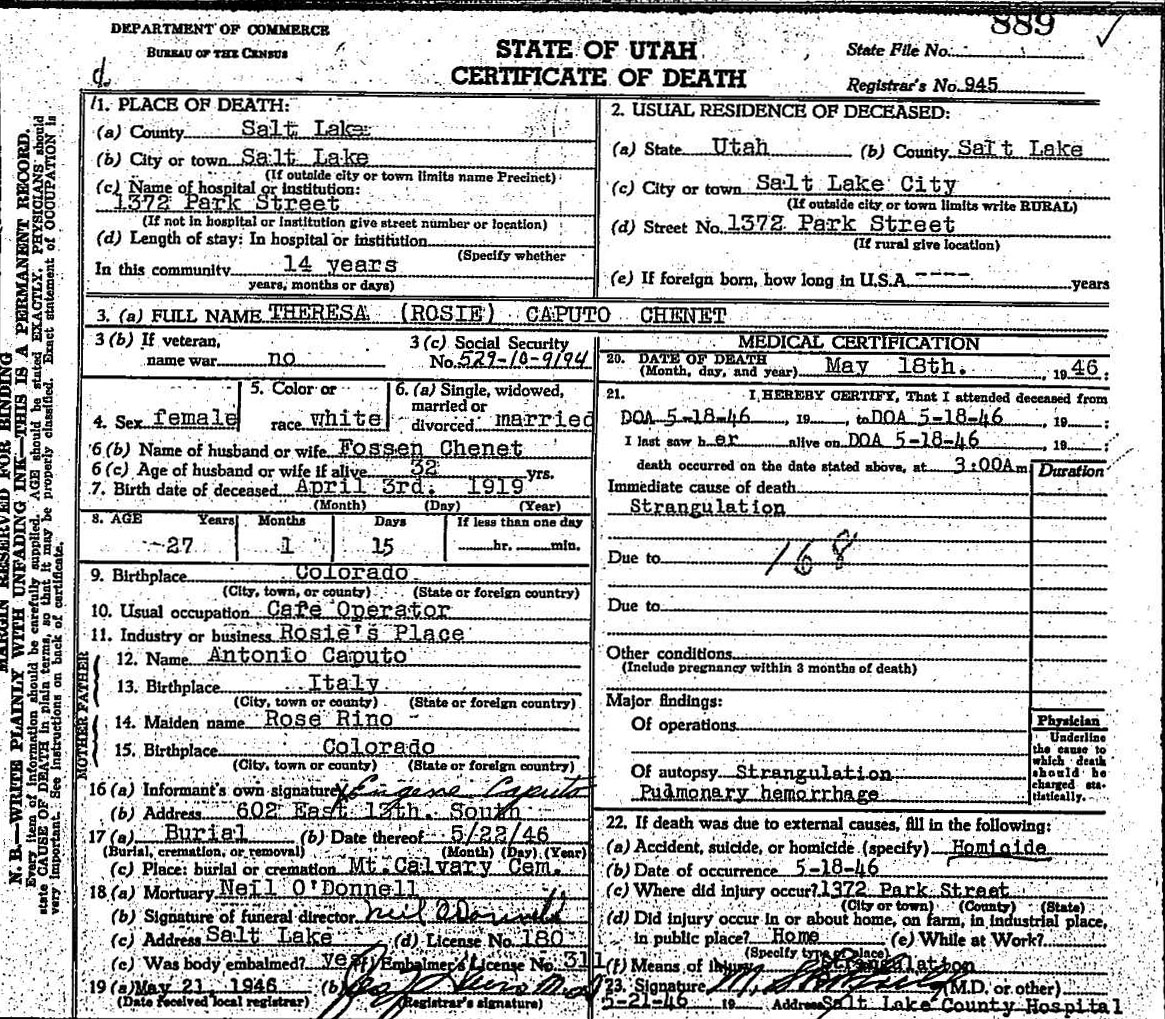 DEPARTMENT OF COMMERCE
BUREAU OF THE CENSUS
d.
STATE OF UTAH
CERTIFICATE OF DEATH
889 ✓
State File No.
Registrar's No. 945
MARGIN RESERVED FOR BINDING
N. B.—WRITE PLAINLY WITH UNFADING INK—THIS IS A PERMANENT RECORD.
Every item of information should be carefully supplied. AGE should be stated EXACTLY. PHYSICIANS should
state CAUSE OF DEATH in plain terms, so that it may be properly classified. Exact statement of OCCUPATION is
very important. See instructions on back of certificate.
1. PLACE OF DEATH:
(a) County Salt Lake
(b) City or town Salt Lake
(If outside city or town limits name Precinct)
(c) Name of hospital or institution:
1372 Park Street
(If not in hospital or institution give street number or location)
(d) Length of stay: In hospital or institution
(Specify whether
In this community 14 years
years, months or days)
2. USUAL RESIDENCE OF DECEASED:
(a) State Utah (b) County Salt Lake
(c) City or town Salt Lake City
(If outside city or town limits write RURAL)
(d) Street No. 1372 Park Street
(If rural give location)
(e) If foreign born, how long in U.S.A. ---- years
3. (a) FULL NAME THERESA (ROSIE) CAPUTO CHENET
3 (b) If veteran, 3 (c) Social Security
name war no No. 529-10-9194
4. Sex female
5. Color or
race white
6. (a) Single, widowed,
married or
divorced married
6 (b) Name of husband or wife Fossen Chenet
6 (c) Age of husband or wife if alive 32 yrs.
7. Birth date of deceased April 3rd. 1919
(Month) (Day) (Year)
8. AGE Years Months Days If less than one day
27 1 15 hr. min.
9. Birthplace Colorado
(City, town, or county) (State or foreign country)
10. Usual occupation Cafe Operator
11. Industry or business Rosie's Place
FATHER
12. Name Antonio Caputo
13. Birthplace Italy
(City, town or county) (State or foreign country)
MOTHER
14. Maiden name Rose Rino
15. Birthplace Colorado
(City, town or county) (State or foreign country)
16 (a) Informant's own signature Eugene Caputo
(b) Address 602 East 13th. South
17 (a) Burial (b) Date thereof 5/22/46
(Burial, cremation, or removal) (Month) (Day) (Year)
(c) Place: burial or cremation Mt. Calvary Cem.
18 (a) Mortuary Neil O'Donnell
(b) Signature of funeral director Neil O'Donnell
(c) Address Salt Lake (d) License No. 180
(e) Was body embalmed? yes (f) Embalmer's License No. 311
19 (a) May 21, 1946 (b)
(Date received local registrar) (Registrar's signature)
MEDICAL CERTIFICATION
20. DATE OF DEATH
(Month, day, and year) May 18th. , 1946 ;
21. I HEREBY CERTIFY, That I attended deceased from
DOA 5-18-46 , 19 , to DOA 5-18-46 , 19 ;
I last saw h er alive on DOA 5-18-46 , 19 ;
death occurred on the date stated above, at 3:00A m
Duration
Immediate cause of death
Strangulation
Due to 168
Due to
Other conditions
(Include pregnancy within 3 months of death)
Major findings:
Of operations
Of autopsy Strangulation
Pulmonary hemorrhage
Physician
Underline
the cause to
which death
should be
charged sta-
tistically.
22. If death was due to external causes, fill in the following:
(a) Accident, suicide, or homicide (specify) Homicide
(b) Date of occurrence 5-18-46
(c) Where did injury occur? 1372 Park Street
(City or town) (County) (State)
(d) Did injury occur in or about home, on farm, in industrial place,
in public place? Home (e) While at Work?
(Specify type of place)
(f) Means of injury Strangulation
23. Signature (M.D. or other)
5-21-46 19 Address Salt Lake County Hospital